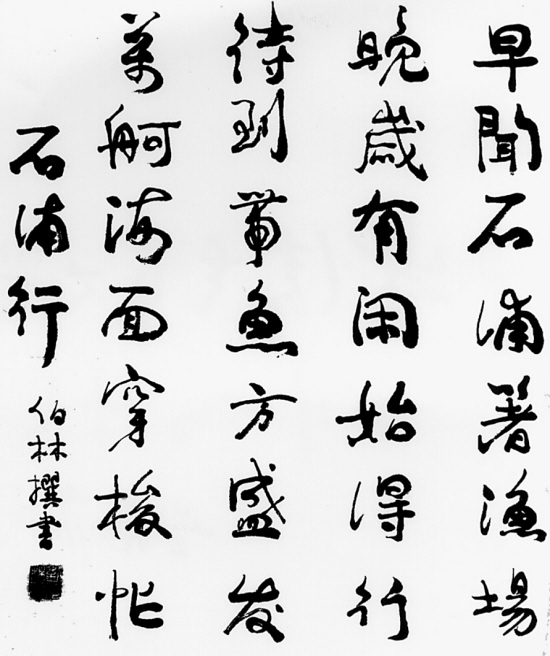 早聞石浦著漁場
晚歲有閑始得行
待到帶魚方盛发
萬舸海面穿梭忙
石浦行
伯林撰書